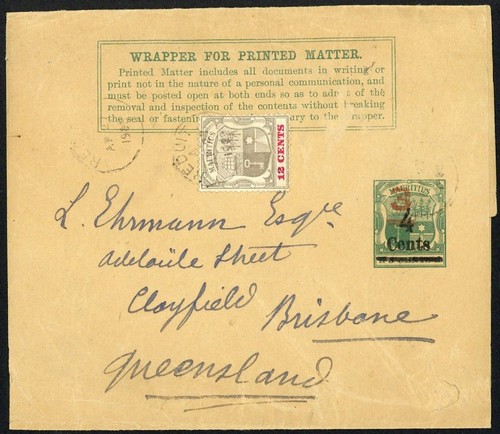 WRAPPER FOR PRINTED MATTER.
Printed Matter includes all documents in writing or
print not in the nature of a personal communication, and
must be posted open at both ends so as to adm s of the
removal and inspection of the contents without breaking
the seal or fastening ary to the rapper.
MAURITIUS
12 CENTS
MAURITIUS
4
Cents
L. Ehrmann Esqre
Adelaide Street
Clayfield Brisbane
Queensland